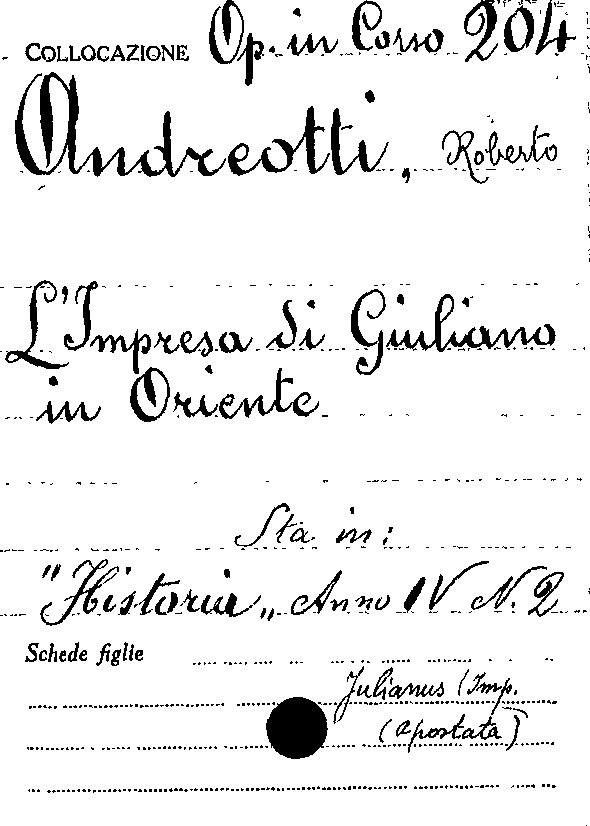 COLLOCAZIONE Op. in Corso 204
Andreotti, Roberto
L'Impresa di Giuliano
in Oriente
Sta in:
"Historia„ Anno IV N. 2
Schede figlie
Julianus (Imp.
(Apostata)